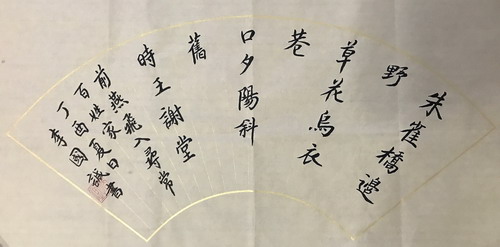 朱雀橋邊
野
草花烏衣
巷
口夕陽科
舊
時王謝堂
前燕飛入尋常
百姓家
丁酉夏日
李國誠書